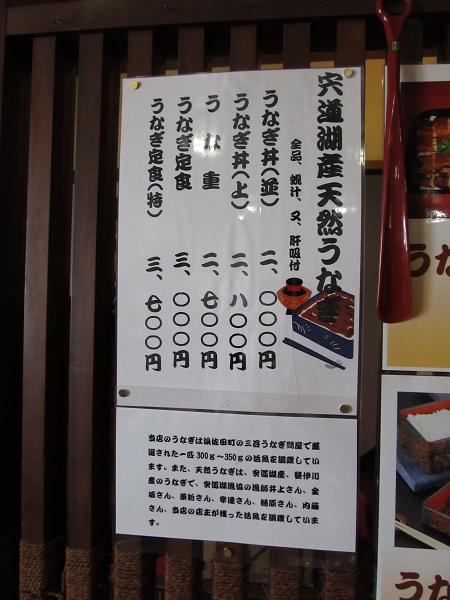 宍道湖産天然うなぎ
全品、蜆汁、又、肝吸付
うなぎ丼(並) 二、〇〇〇円
うなぎ丼(上) 二、八〇〇円
うな重 二、七〇〇円
うなぎ定食 三、〇〇〇円
うなぎ定食(特) 三、七〇〇円
当店のうなぎは浜佐田町の三谷うなぎ問屋で厳
選された一匹300g～350gの活鰻を調理してい
ます。また、天然うなぎは、宍道湖産、斐伊川
産のうなぎで、宍道湖漁協の漁師井上さん、金
坂さん、
さん、安達さん、
さん、内藤
さん、当店の店主が獲った活鰻を調理していま
す。
うな
うな